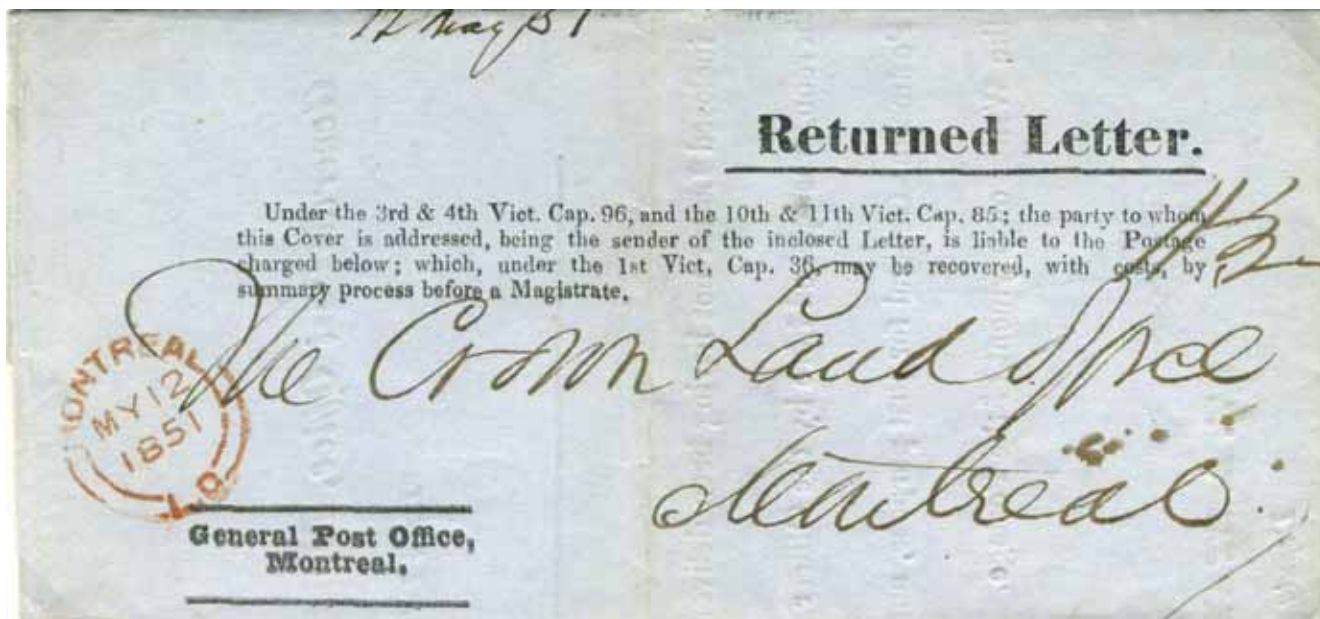 12 May 51
Returned Letter.
Under the 3rd & 4th Vict. Cap. 96, and the 10th & 11th Vict. Cap. 85; the party to whom
this Cover is addressed, being the sender of the inclosed Letter, is liable to the Postage
charged below; which, under the 1st Vict, Cap. 36, may be recovered, with costs, by
summary process before a Magistrate.
The Crown Land Office
Montreal
MONTREAL
MY 12
1851
L.C.
General Post Office,
Montreal.